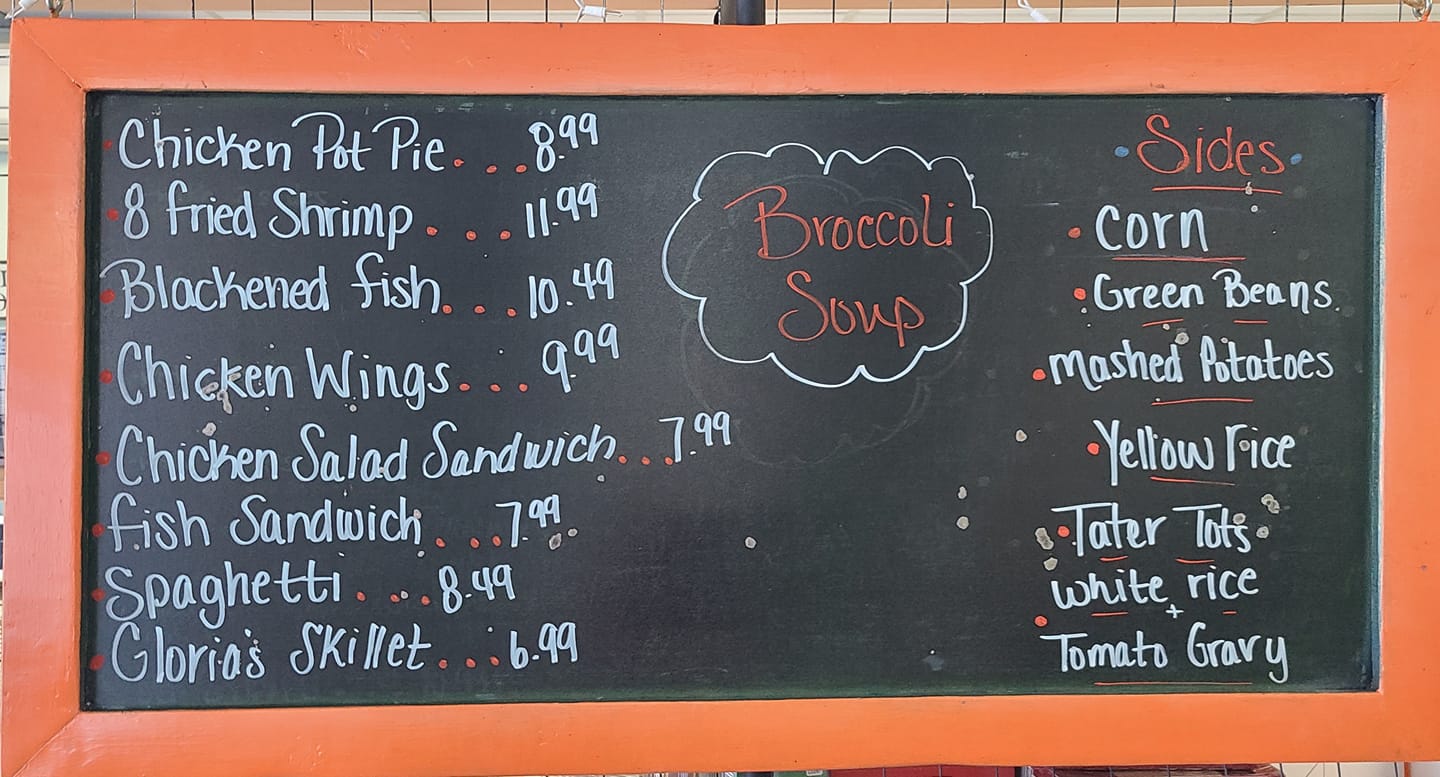 Chicken Pot Pie...8.99
8 fried Shrimp...11.99
Blackened fish...10.49
Chicken Wings...9.99
Chicken Salad Sandwich...7.99
fish Sandwich...7.99
Spaghetti...8.49
Gloria's Skillet...6.99
Broccoli
Soup
Sides
Corn
Green Beans
Mashed Potatoes
Yellow rice
Tater Tots
white rice
+
Tomato Gravy